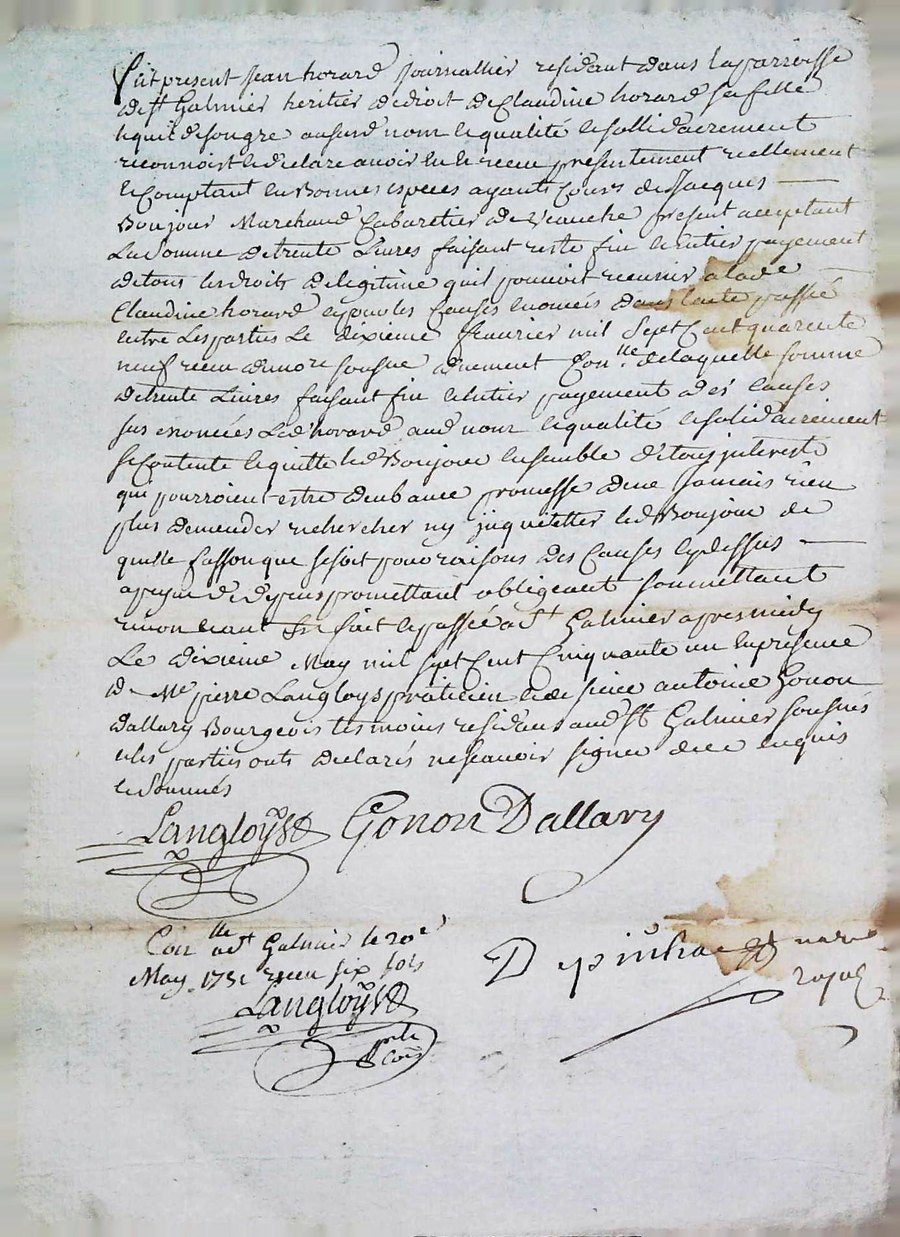 fut present jean horard journallier residant dans la parroisse
de st Galmier heritier de droit de Claudine horard sa fille
lequel de son gre aususd nom et qualité et sollidairement
reconnoist et declare avoir eu et receu presentement reellement
et Comptant en Bonnes especes ayants Cours de Jacques
Boujour Marchand Cabaretier de present acceptant
La Somme de trente Livres faisant reste fin et entier payement
de tous les droits de legitime quil pouvoit
Claudine horard et pour les Causes enoncés dans lacte passé
entre Les parties Le dixieme feuvrier mil Sept Cent quarente
neuf receu du no.re sousne duement Con.lle de laquelle somme
de trente Livres faisant fin et entier payement et des Causes
sus enoncées Led horard aud nom et qualité et solidairement
se Contente et quitte led Boujour ensemble de tous interests
qui pourroient estre deub avec promesse de ne jamais rien
plus demender rechercher ny inquietter led Boujour de
quelle fasson que se soit pour raisons des Causes cy dessus
a peyne de depens promettant obligeant soummettant
renonceant &c fait et passé a st Galmier apres midy
Le dixieme May mil Sept Cent Cinquante un en presence
de Me pierre Langloys praticien et de sieur antoine Gonon
Dallary Bourgeois tesmoins residans aud st Galmier sousnés
et les parties onts declarés ne scavoir signer de ce enquis
et sommés
Langloys Gonon Dallary
Con lle a st Galmier le 20e
May 1751 receu six sols
Langloys
D
royal